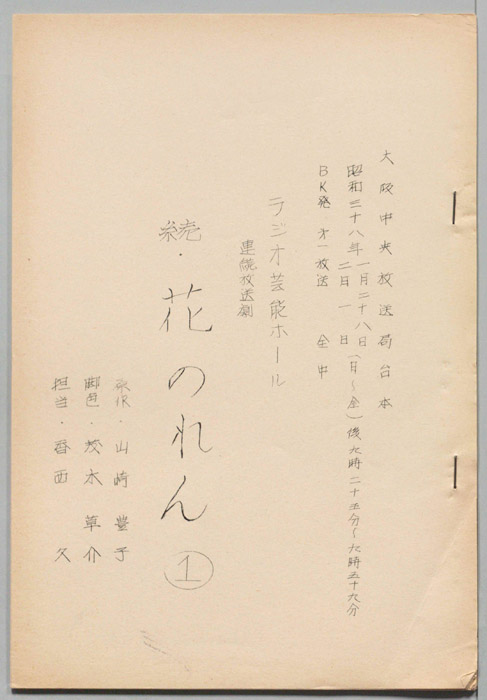 大阪中央放送局台本
昭和三十八年 一月二十八日
二月一日(月〜金)後九時二十五分〜九時五十九分
BK発 才一放送 全中
ラジオ芸能ホール
連続放送劇
続・花のれん ①
原作・山崎豊子
脚色・茂木草介
担当・香西久